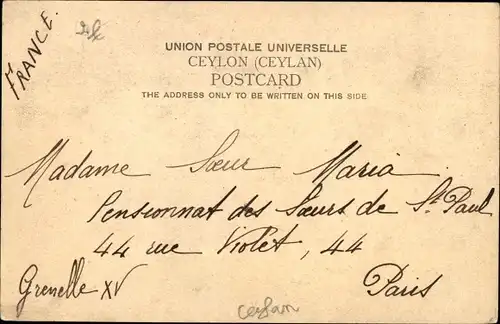 FRANCE.
UNION POSTALE UNIVERSELLE
CEYLON (CEYLAN)
POSTCARD
THE ADDRESS ONLY TO BE WRITTEN ON THIS SIDE
Madame Sœur Maria
Pensionnat des Sœurs de St Paul
44 rue Violet, 44
Grenelle XV Paris
Ceylan